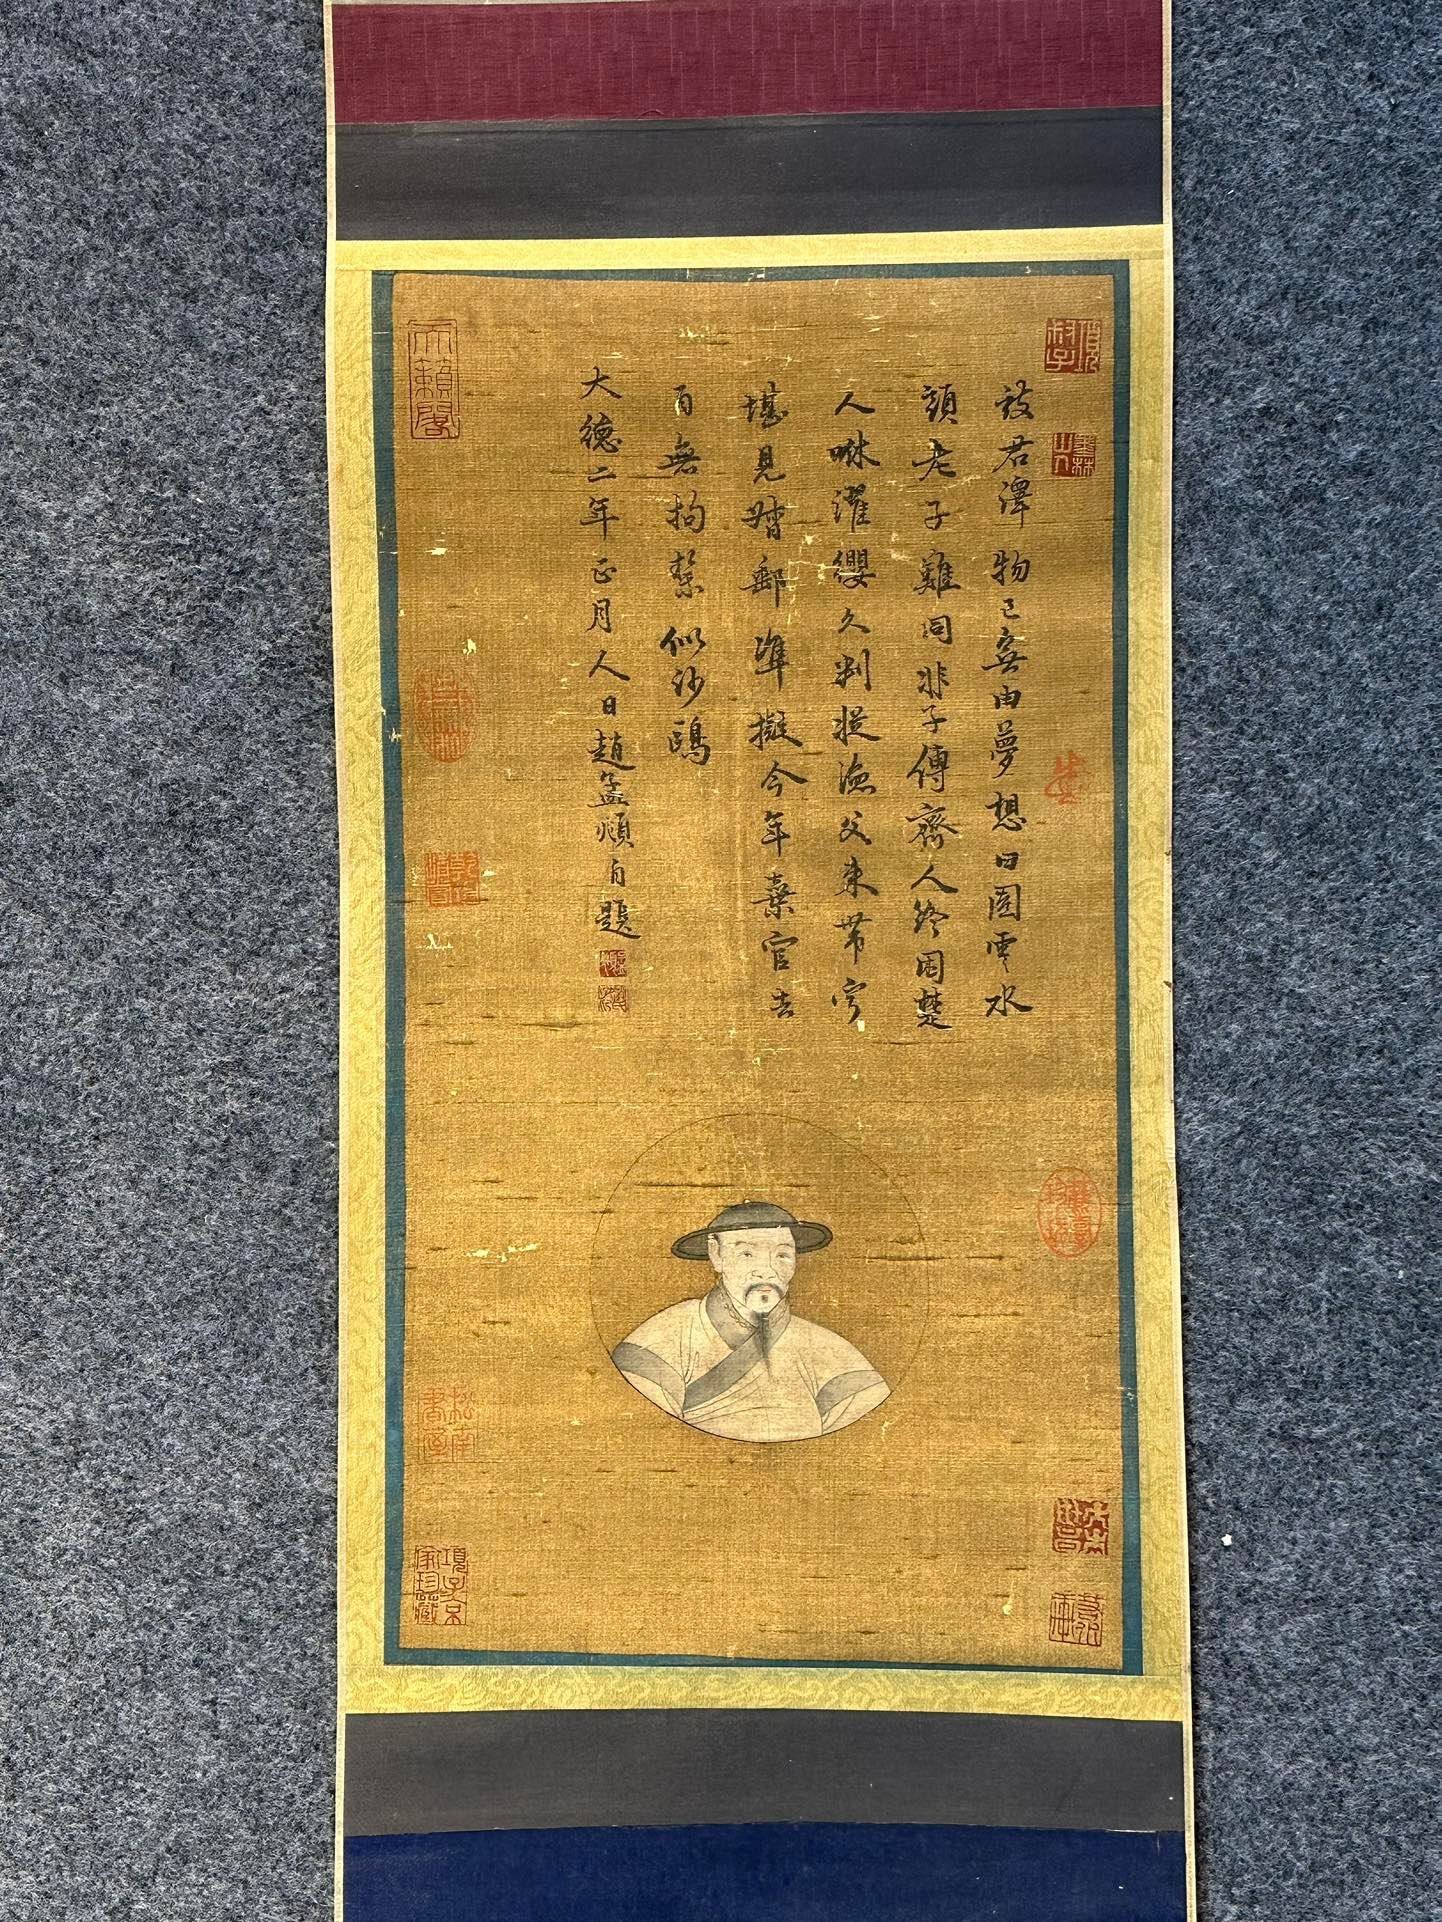 致君澤物已無由夢想田園雲水
頭老子難同非子傳齊人終困楚
人咻濯纓久判從漁父束帶寧
堪見督郵準擬今年棄官去
自無拘繫似沙鷗
大德二年正月人日趙孟頫自題
天籟閣
項子京家珍藏
墨林山人